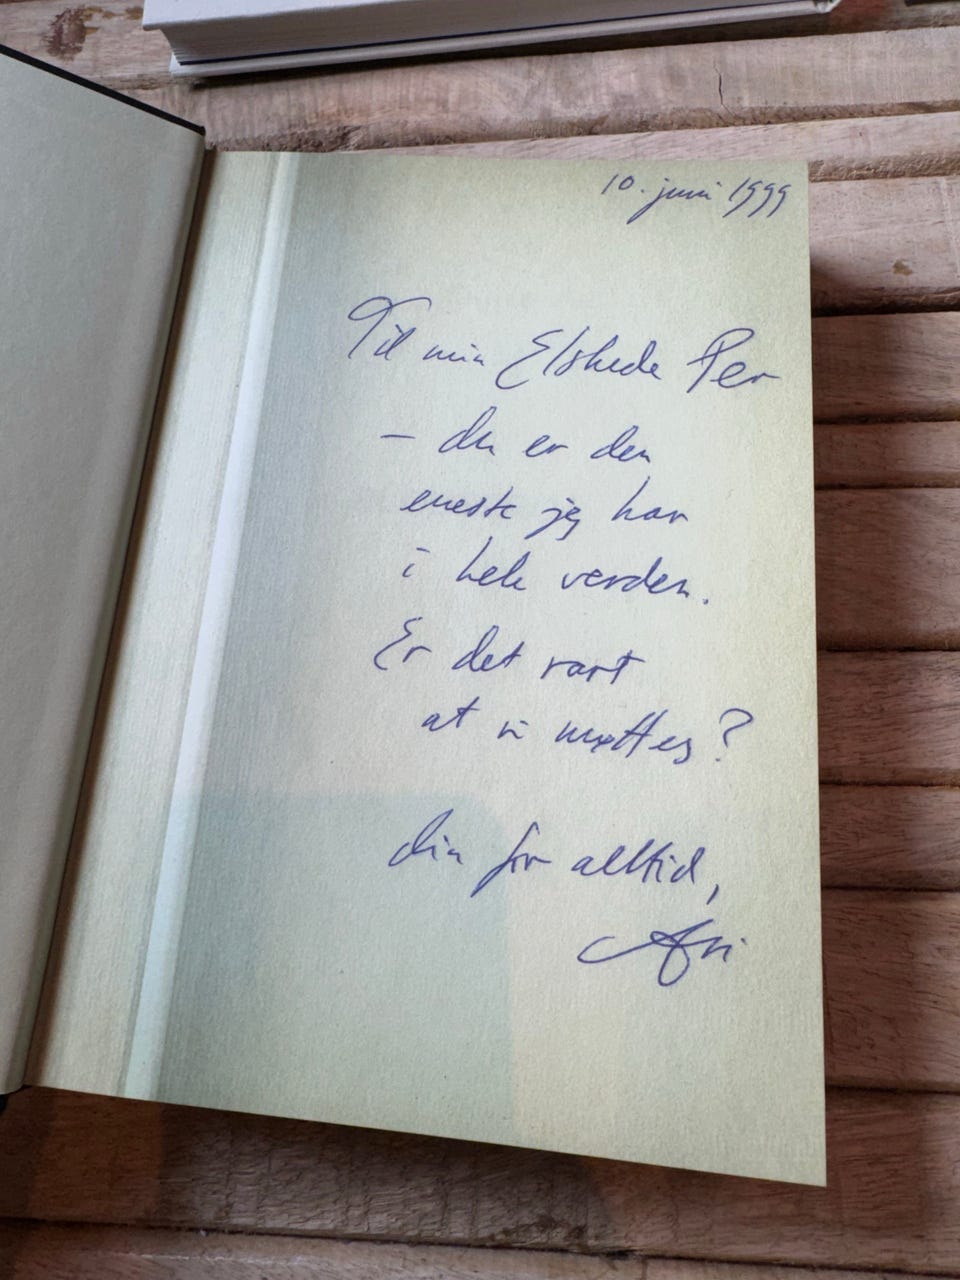 10. juni 1999
Til min Elskede Per
– du er den
eneste jeg har
i hele verden.
Er det rart
at vi møttes?
din for alltid,